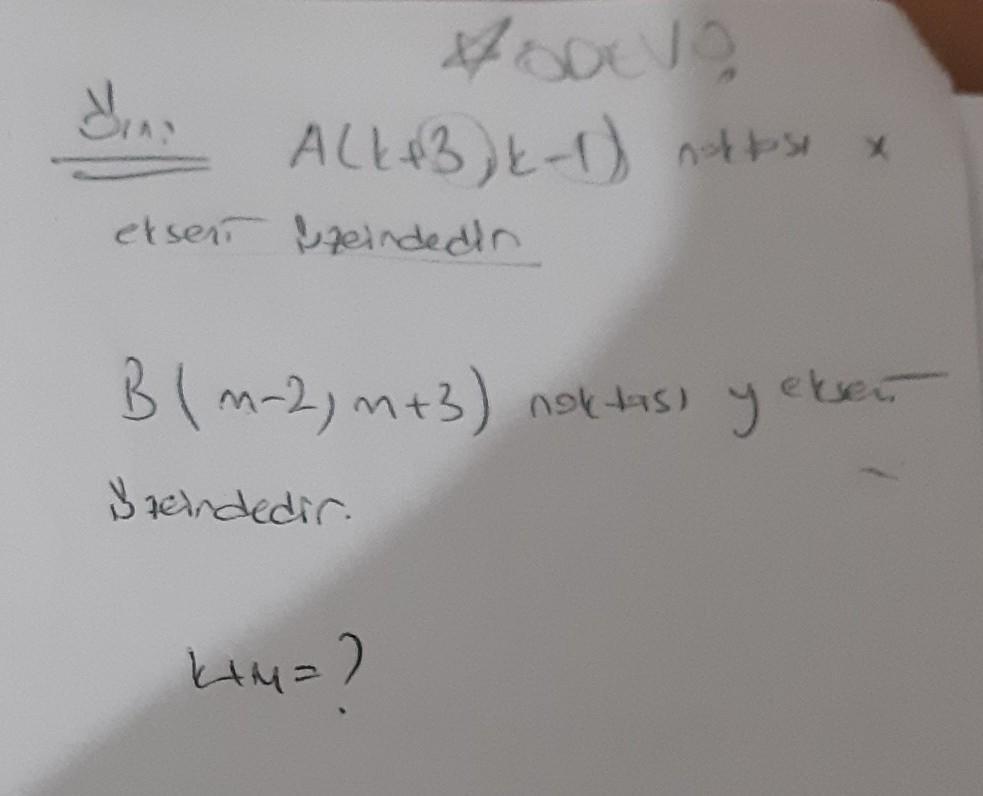 ☆ ÖDEV?
Örn:
A(k+3, k-1) noktası x
ekseni üzeindedir
B(m-2, m+3) noktası y ekseni
üzeindedir.
k+m=?